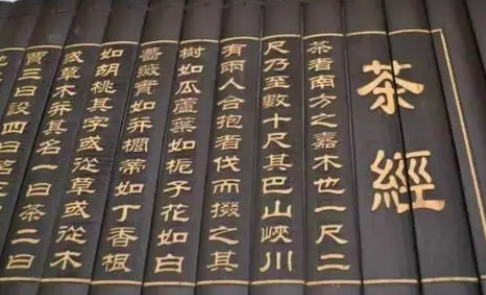 茶經
茶者南方之嘉木也一尺二
尺乃至數十尺其巴山峽川
有兩人合抱者伐而掇之其
樹如瓜蘆葉如梔子花如白
薔薇實如栟櫚蒂如丁香根
如胡桃其字或從草或從木
或草木并其名一曰茶二曰
三曰設四曰茗